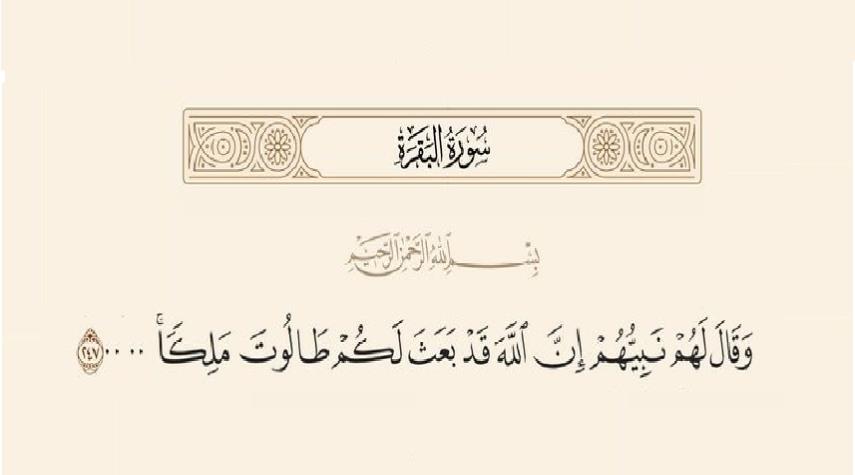 سُورَةُ البَقَرَةِ
بِسْمِ اللَّهِ الرَّحْمَٰنِ الرَّحِيمِ
وَقَالَ لَهُمْ نَبِيُّهُمْ إِنَّ ٱللَّهَ قَدْ بَعَثَ لَكُمْ طَالُوتَ مَلِكًاۚ .... ٢٤٧